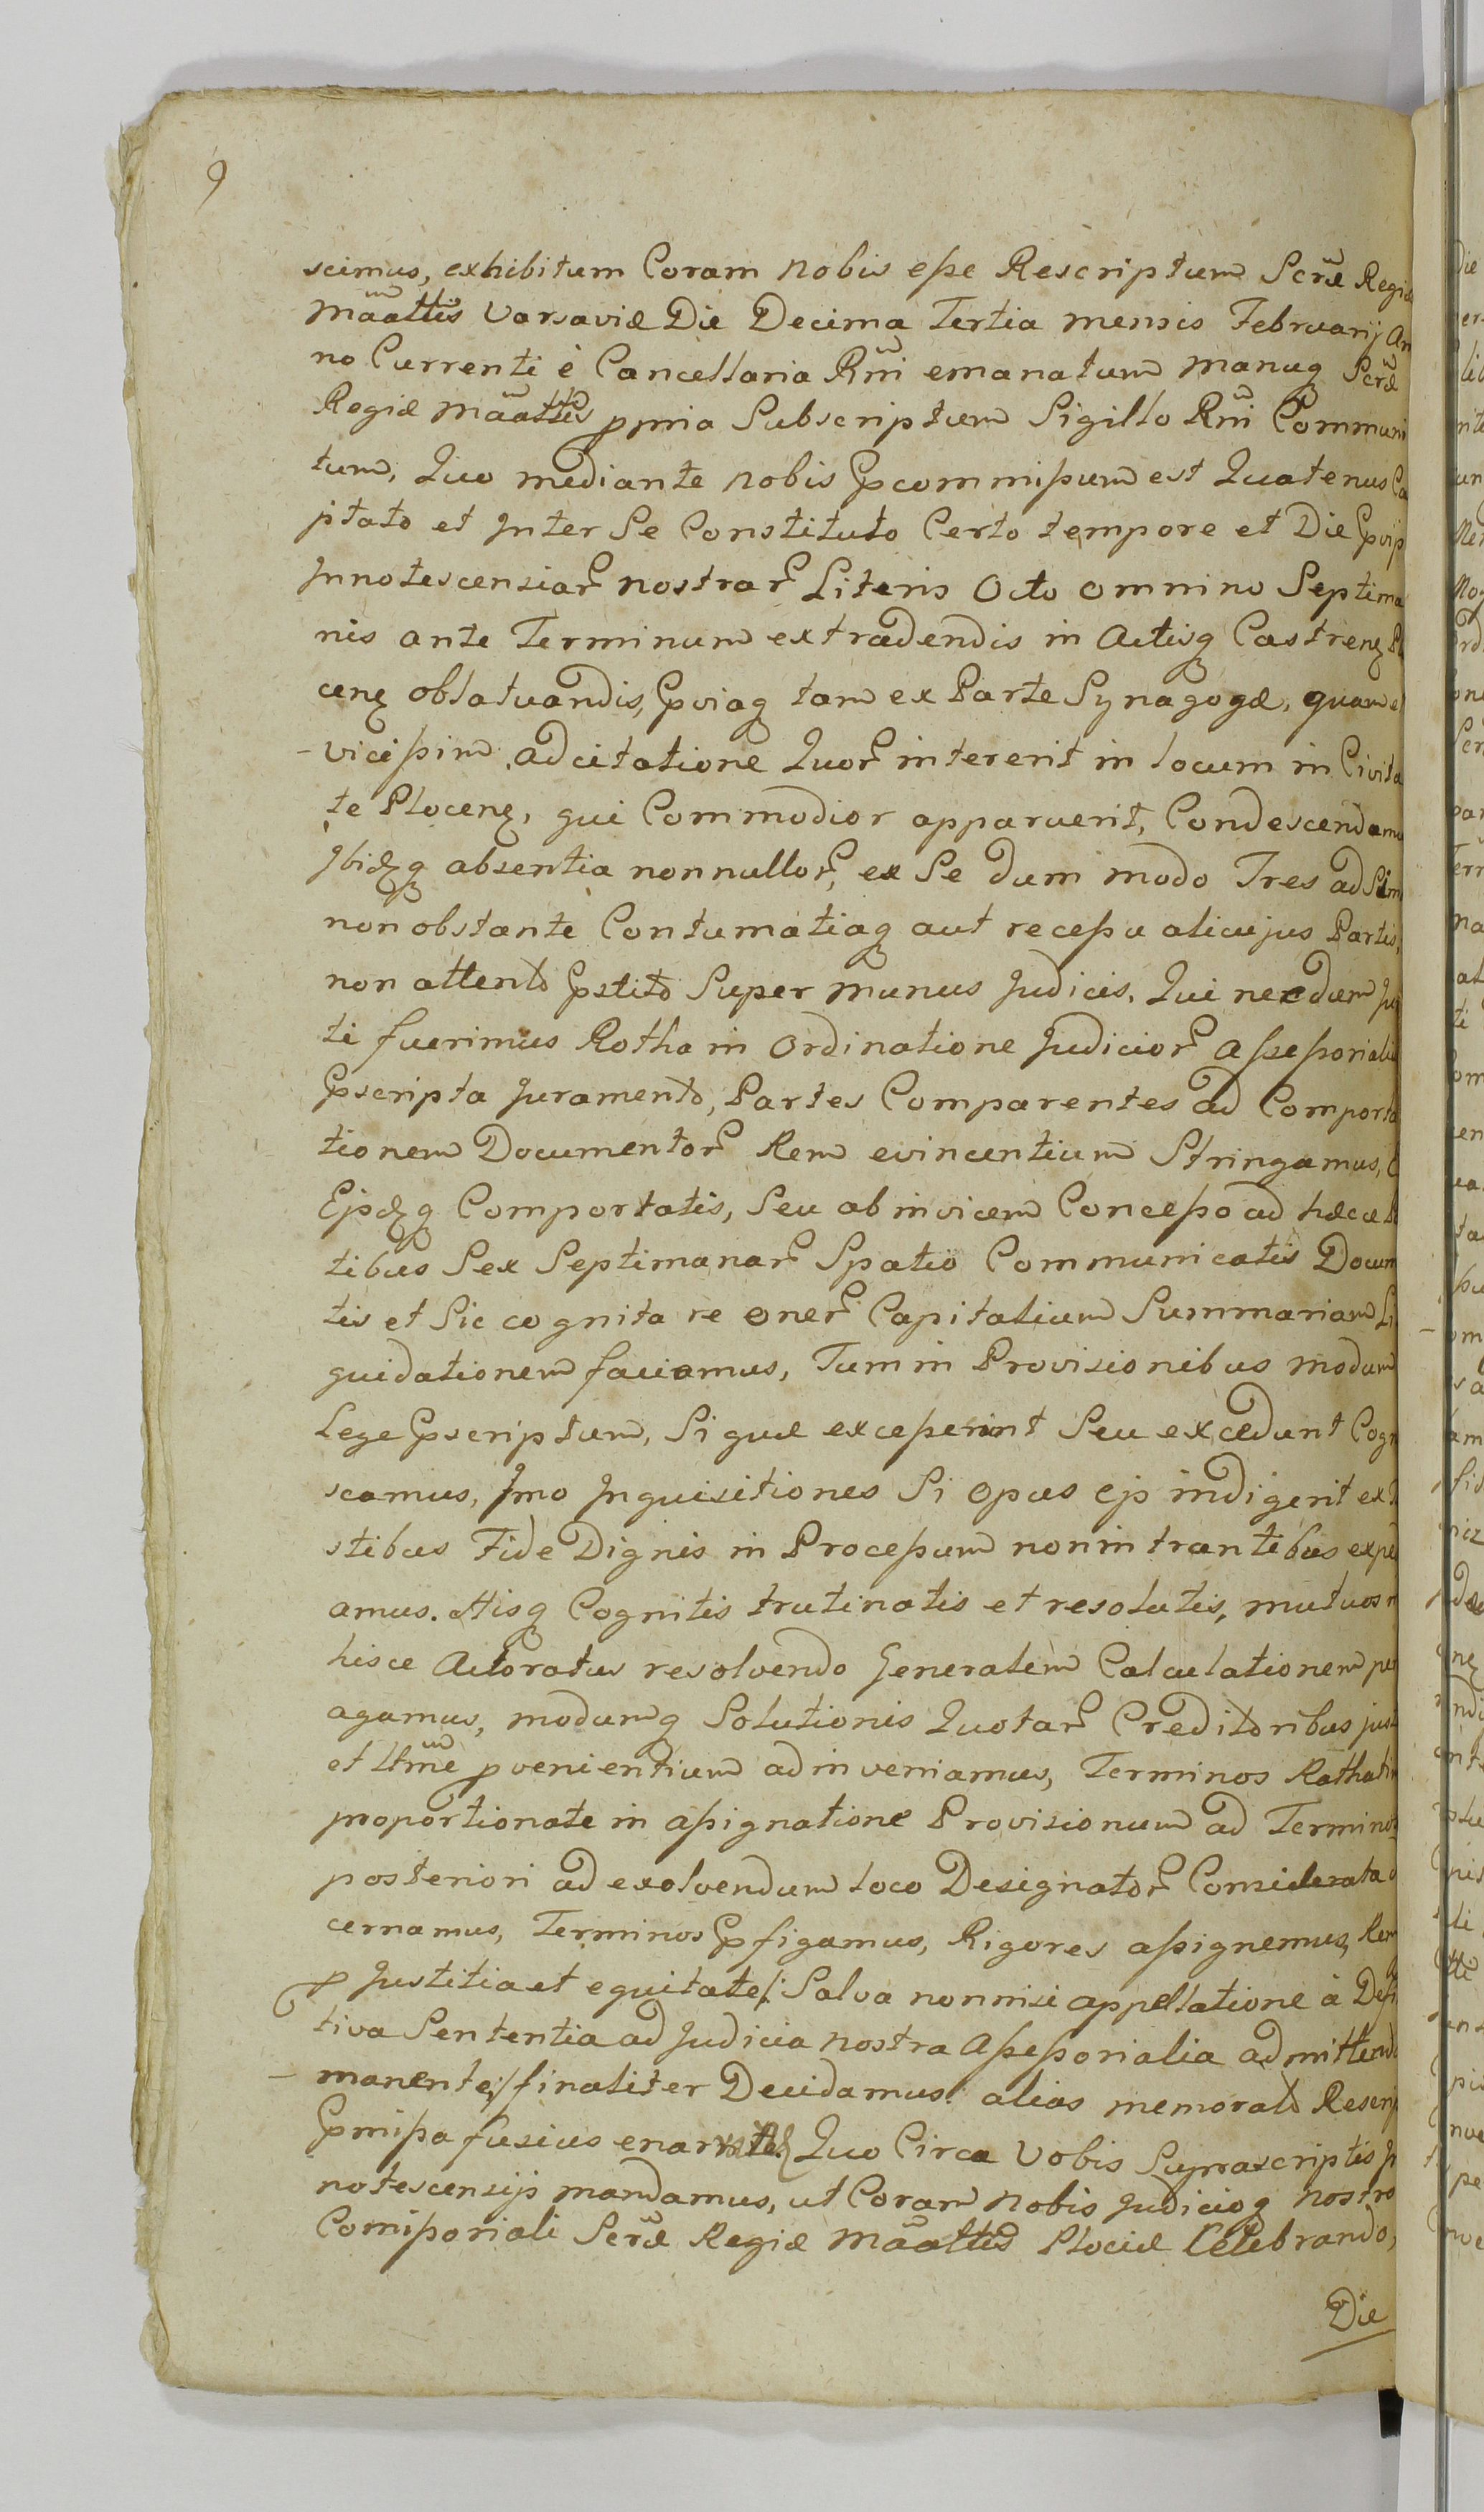 9
scimus, exhibitum Coram nobis eße Rescriptum Scræ Regiæ
Mãattis Varsaviæ Die Decima Tertia mensis Februarij An
no Currenti è Cancellaria Rñi emanatum manuq Scræ
Regiæ Mãattis ppria Subscriptum Sigillo Rñi Communi
tum, Quo mediante nobis Pcommißum est Quatenus Ca
ptato et Inter Se Constituto Certo tempore et Die Pvijs
Innotescensiar nostrar Literis Octo omnino Septima
nis ante Terminum extradendis in Actisq Castrenq Plo
cenq oblatuandis, Pviaq tam ex Parte Synagogæ, quam et
vicißim adcitatione Quor intererit in locum in Civita
te Plocenq, qui Commodior apparuerit, Condescendamus
Ibidq absentia nonnullor, ex Se dum modo Tres ad Sim
non obstante Contumatiaq aut receßu alicujus Partis,
non attento Pstito Super munus Judicis, Qui necdum Ju
ti fuerimus Rotha in Ordinatione Judicior Aßeßorialiu
Pscripta Juramento, Partes Comparentes ad Comporta
tionem Documentor Rem evincentium Stringamus,
Ejsdq Comportatis, Seu ab invicem Conceßo ad hæc
tibus Sex Septimanar Spatio Communicatis Docum
tis et Sic cognita re oner Capitalium Summariam Li
quidationem faciamus, Tum in Provisionibus modum
Lege Pscriptum, Si quæ exceßerint Seu excedunt Cogn
scamus, Imo Inquisitiones Si opus ejs indigerit ex
stibus Fide Dignis in Proceßum non intrantibus expe
amus. Hisq Cognitis trutinatis et resolutis, mutuos
hisce Actoratus resolvendo Generalem Calculationem per
agamus, modumq Solutionis Quotar Creditoribus just
et ltme pvenientium adinveniamus, Terminos Rathatim
proportionate in aßignatione Provisionum ad Terminos
posteriori ad exolvendum loco Designator Considerata
cernamus, Terminos Pfigamus, Rigores aßignemus, Rem
p Justitia et equitate /: Salva nonnisi appellatione à Defi
tiva Sententia ad Judicia nostra Aßeßorialia admittend
manente :/ finaliter Decidamus. alias memorato Rescrip
Pmißa fusius Quo Circa Vobis Suprascriptis In
notescensijs mandamus, ut Coram nobis Judicioq nostro
Comißoriali Scræ Regiæ Mãattis Plociæ Celebrando,
Die